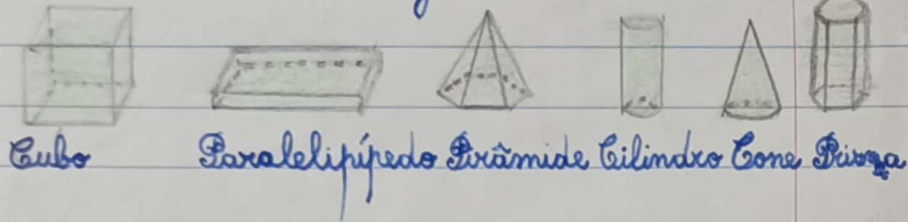 Cubo Paralelipípedo Pirâmide Cilindro Cone Prisma